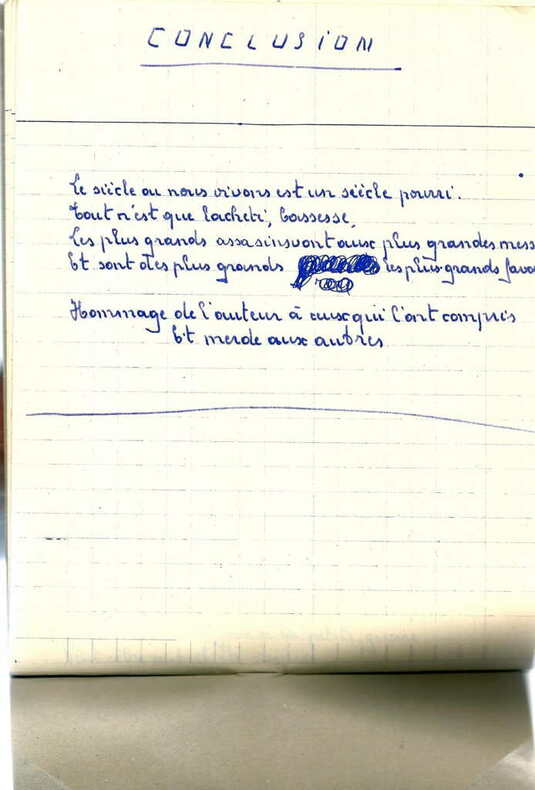 CONCLUSION
Le siècle ou nous vivons est un siècle pourri.
Tout n'est que lacheté, bassesse,
Les plus grands assasins vont aux plus grandes mess
Et sont des plus grands les plus grands favo
Hommage de l'auteur à ceux qui l'ont compris
Et merde aux autres